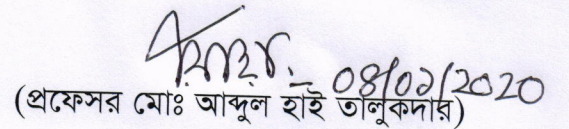 08/02/2020
(প্রফেসর মোঃ আব্দুল হাই তালুকদার)